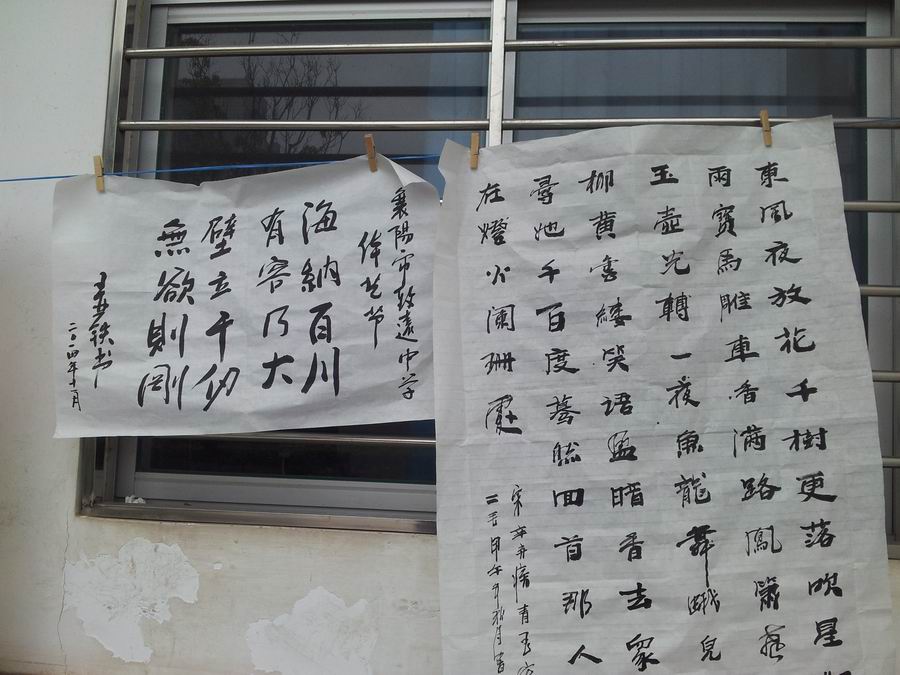 襄陽市致遠中学
体艺节
海納百川
有容乃大
壁立千仞
無欲則剛
铁书
二〇一四年十月
東風夜放花千樹更落吹星
雨寶馬雕車香滿路鳳簫
玉壺光轉一夜魚龍舞蛾兒
柳黄雪縷笑語盈暗香去眾
尋她千百度驀然回首那人
在燈火闌珊處
宋辛弃疾青玉案
甲午年秋月書